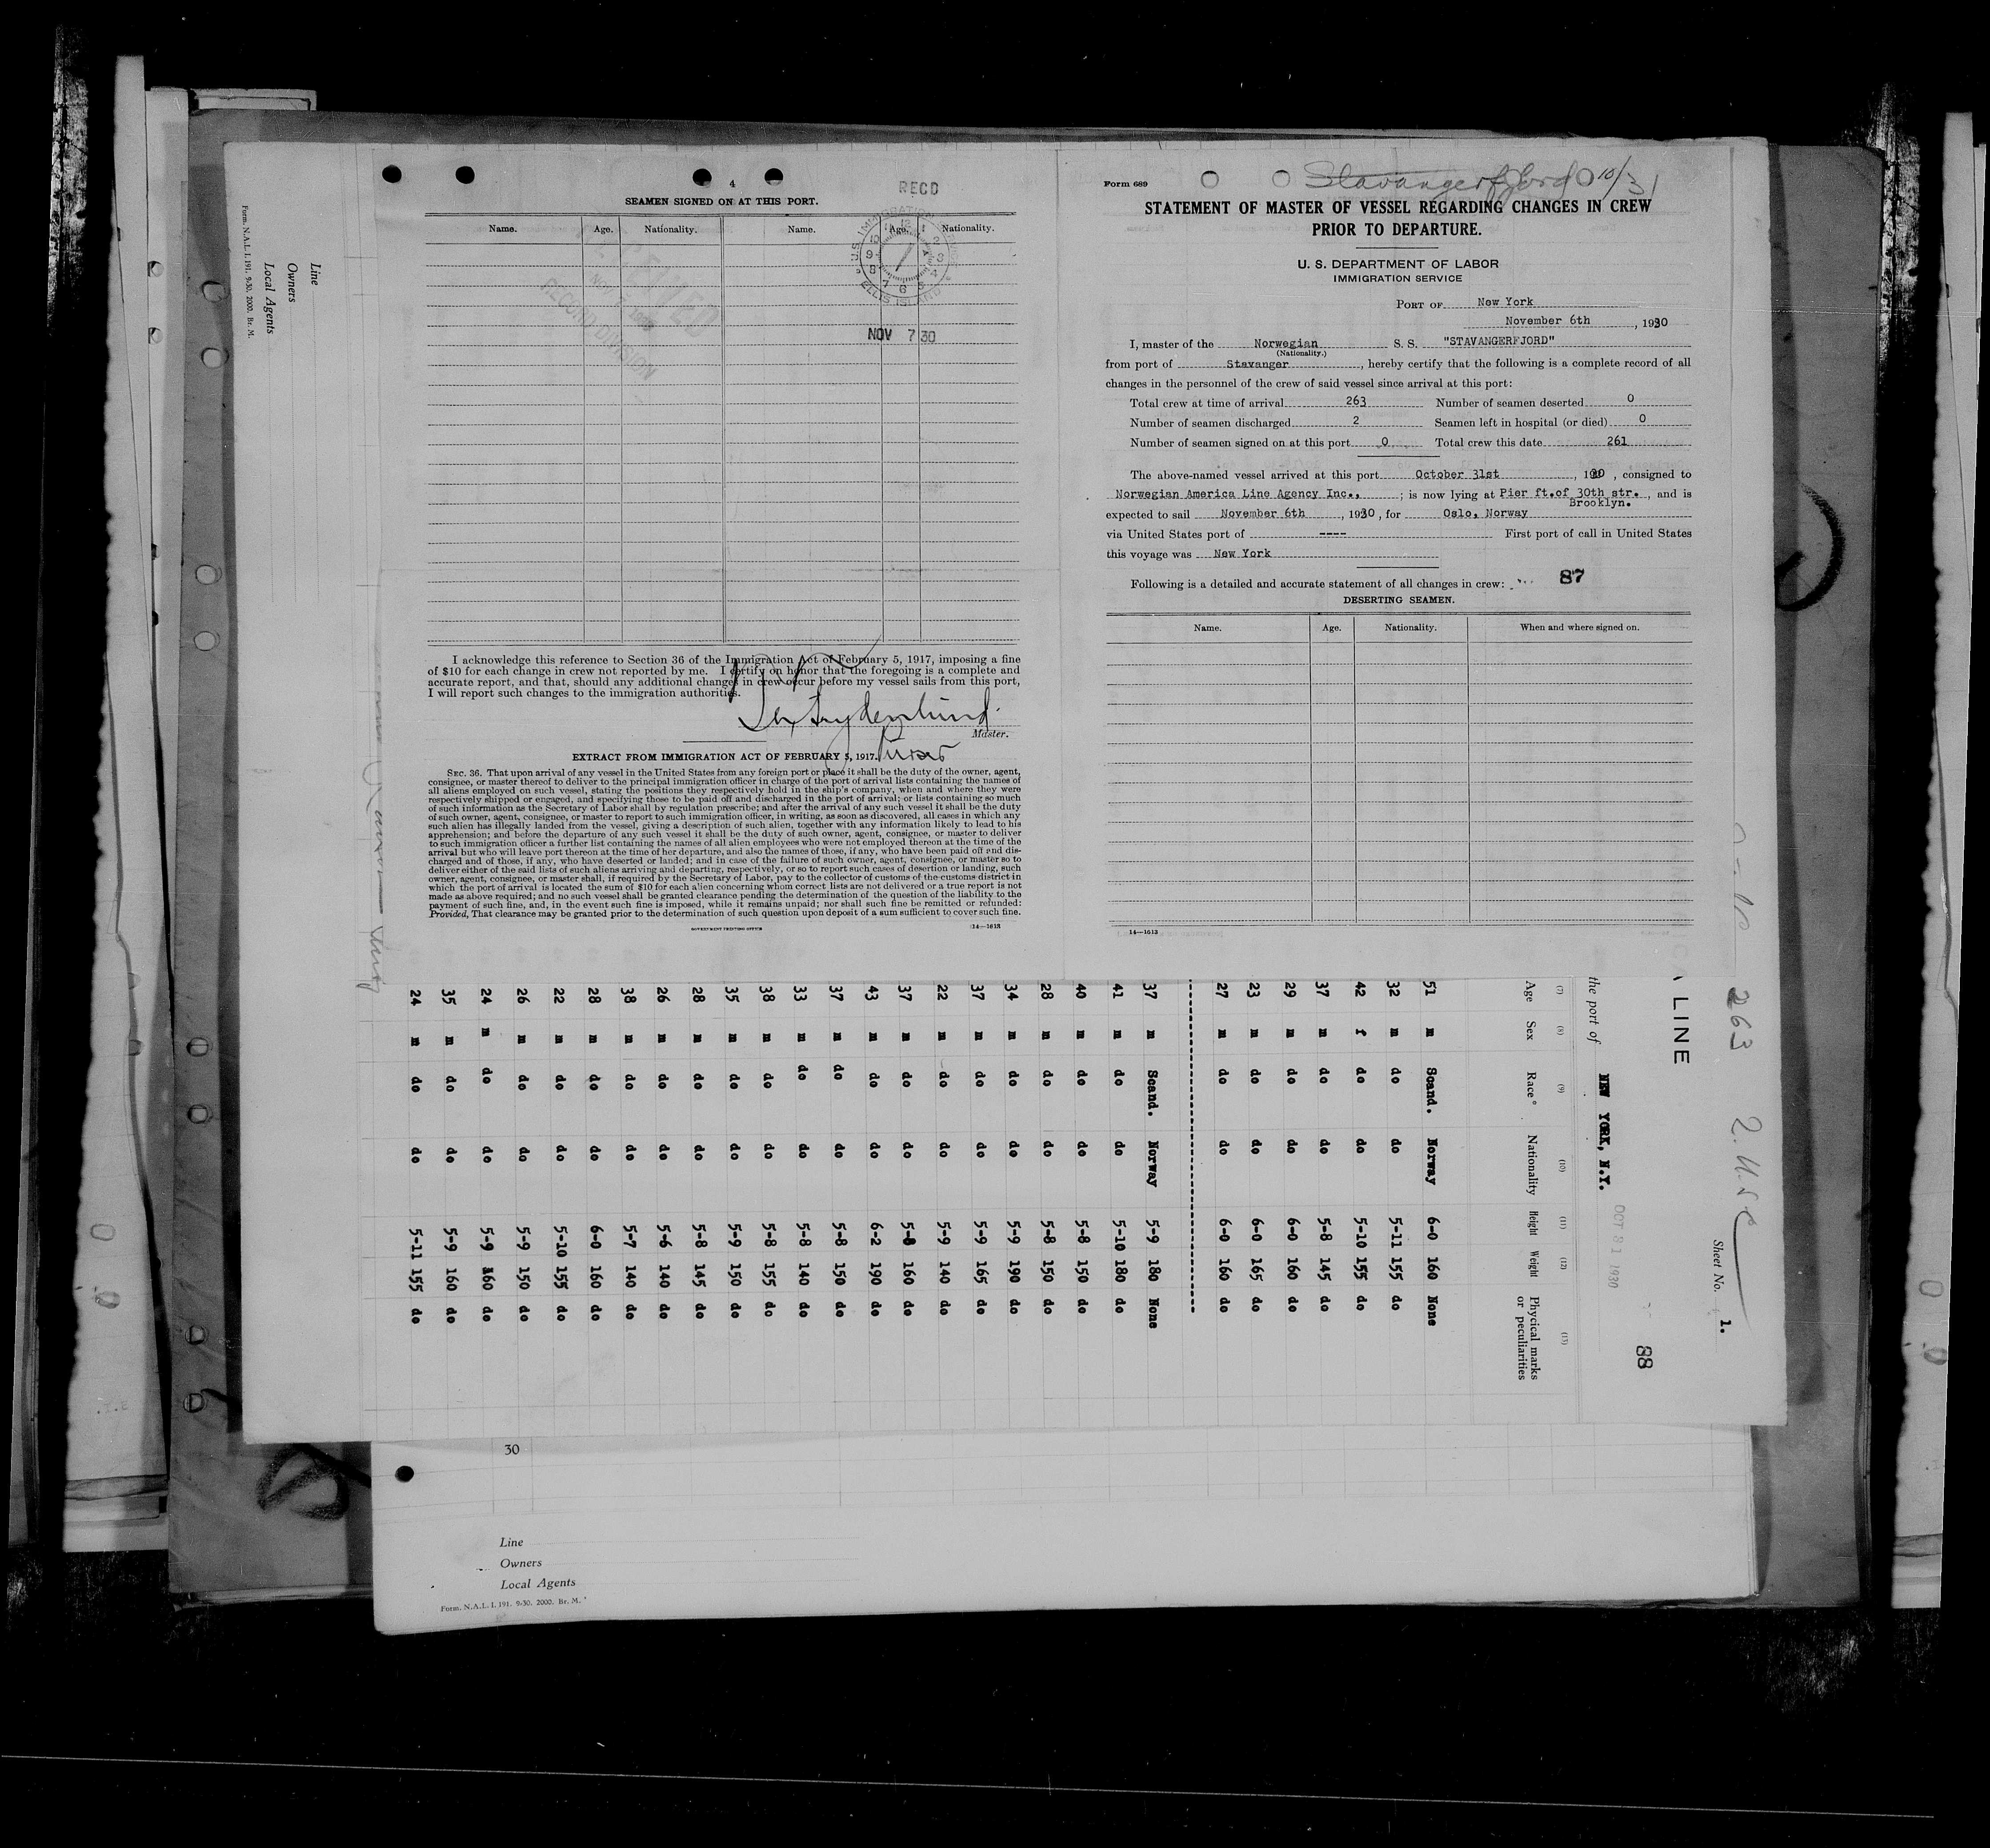 4
RECD
SEAMEN SIGNED ON AT THIS PORT.
Name. Age. Nationality. Name. Age. Nationality.
U.S. IMMIGRATION SERVICE
ELLIS ISLAND
NOV 7 30
RECEIVED
NOV 7 1930
RECORD DIVISION
I acknowledge this reference to Section 36 of the Immigration Act of February 5, 1917, imposing a fine
of $10 for each change in crew not reported by me. I certify on honor that the foregoing is a complete and
accurate report, and that, should any additional changes in crew occur before my vessel sails from this port,
I will report such changes to the immigration authorities.
Master.
Purser
EXTRACT FROM IMMIGRATION ACT OF FEBRUARY 5, 1917.
SEC. 36. That upon arrival of any vessel in the United States from any foreign port or place it shall be the duty of the owner, agent,
consignee, or master thereof to deliver to the principal immigration officer in charge of the port of arrival lists containing the names of
all aliens employed on such vessel, stating the positions they respectively hold in the ship's company, when and where they were
respectively shipped or engaged, and specifying those to be paid off and discharged in the port of arrival; or lists containing so much
of such information as the Secretary of Labor shall by regulation prescribe; and after the arrival of any such vessel it shall be the duty
of such owner, agent, consignee, or master to report to such immigration officer, in writing, as soon as discovered, all cases in which any
such alien has illegally landed from the vessel, giving a description of such alien, together with any information likely to lead to his
apprehension; and before the departure of any such vessel it shall be the duty of such owner, agent, consignee, or master to deliver
to such immigration officer a further list containing the names of all alien employees who were not employed thereon at the time of the
arrival but who will leave port thereon at the time of her departure, and also the names of those, if any, who have been paid off and dis-
charged and of those, if any, who have deserted or landed; and in case of the failure of such owner, agent, consignee, or master so to
deliver either of the said lists of such aliens arriving and departing, respectively, or so to report such cases of desertion or landing, such
owner, agent, consignee, or master shall, if required by the Secretary of Labor, pay to the collector of customs of the customs district in
which the port of arrival is located the sum of $10 for each alien concerning whom correct lists are not delivered or a true report is not
made as above required; and no such vessel shall be granted clearance pending the determination of the question of the liability to the
payment of such fine, and, in the event such fine is imposed, while it remains unpaid; nor shall such fine be remitted or refunded:
Provided, That clearance may be granted prior to the determination of such question upon deposit of a sum sufficient to cover such fine.
GOVERNMENT PRINTING OFFICE 14—1613
Form 689
Stavangerfjord 10/31
STATEMENT OF MASTER OF VESSEL REGARDING CHANGES IN CREW
PRIOR TO DEPARTURE.
U. S. DEPARTMENT OF LABOR
IMMIGRATION SERVICE
PORT OF New York
November 6th, 1930
I, master of the Norwegian S. S. "STAVANGERFJORD"
(Nationality.)
from port of Stavanger, hereby certify that the following is a complete record of all
changes in the personnel of the crew of said vessel since arrival at this port:
Total crew at time of arrival 263 Number of seamen deserted 0
Number of seamen discharged 2 Seamen left in hospital (or died) 0
Number of seamen signed on at this port 0 Total crew this date 261
The above-named vessel arrived at this port October 31st, 1930, consigned to
Norwegian America Line Agency Inc., ; is now lying at Pier ft.of 30th str., and is
Brooklyn.
expected to sail November 6th, 1930, for Oslo, Norway
via United States port of ---- First port of call in United States
this voyage was New York
Following is a detailed and accurate statement of all changes in crew: 87
DESERTING SEAMEN.
Name. Age. Nationality. When and where signed on.
14—1613
263 2. U.S.C
Sheet No. 1.
LINE
88
the port of NEW YORK, N.Y. OCT 31 1930
(7) (8) (9) (10) (11) (12) (13)
Age Sex Race* Nationality Height Weight Physical marks
or peculiarities
51 m Scand. Norway 6-0 160 None
32 m do do 5-11 155 do
42 f do do 5-10 155 do
37 m do do 5-8 145 do
29 m do do 6-0 160 do
23 m do do 6-0 165 do
27 m do do 6-0 160 do
37 m Scand. Norway 5-9 180 None
41 m do do 5-10 180 do
40 m do do 5-8 150 do
28 m do do 5-8 150 do
34 m do do 5-9 190 do
37 m do do 5-9 165 do
22 m do do 5-9 140 do
37 m do do 5-8 160 do
43 m do do 6-2 190 do
37 m do do 5-8 150 do
33 m do do 5-8 140 do
38 m do do 5-8 155 do
35 m do do 5-9 150 do
28 m do do 5-8 145 do
26 m do do 5-6 140 do
38 m do do 5-7 140 do
28 m do do 6-0 160 do
22 m do do 5-10 155 do
26 m do do 5-9 150 do
24 m do do 5-9 160 do
35 m do do 5-9 160 do
24 m do do 5-11 155 do
Line
Owners
Local Agents
Form. N.A.L.I. 191. 9-30. 2000. Br. M.
30
Line
Owners
Local Agents
Form. N.A.L.I. 191. 9-30. 2000. Br. M.